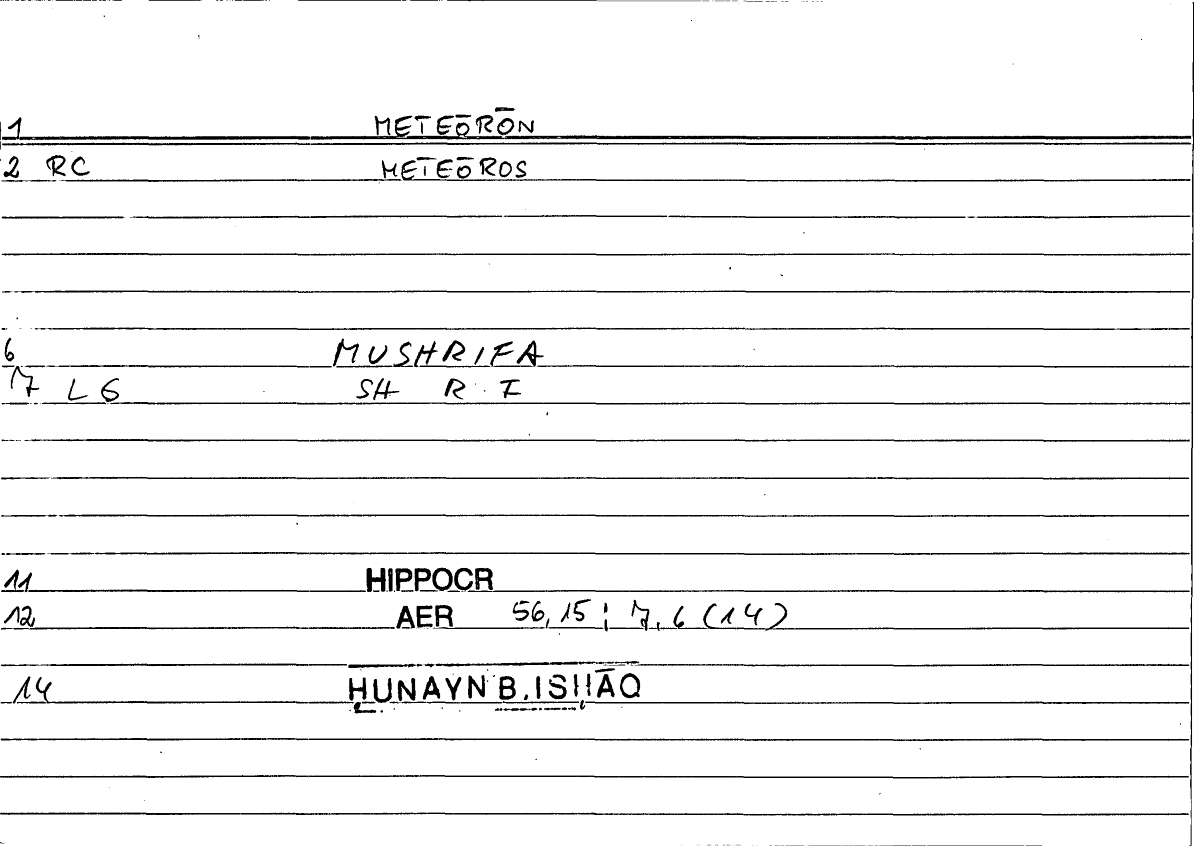 1 METEŌRŌN
2 RC METEŌROS
6 MUSHRIFA
7 LG SH R F
11 HIPPOCR
12 AER 56,15 ; 7,6 (14)
14 ḤUNAYN B. ISḤĀQ